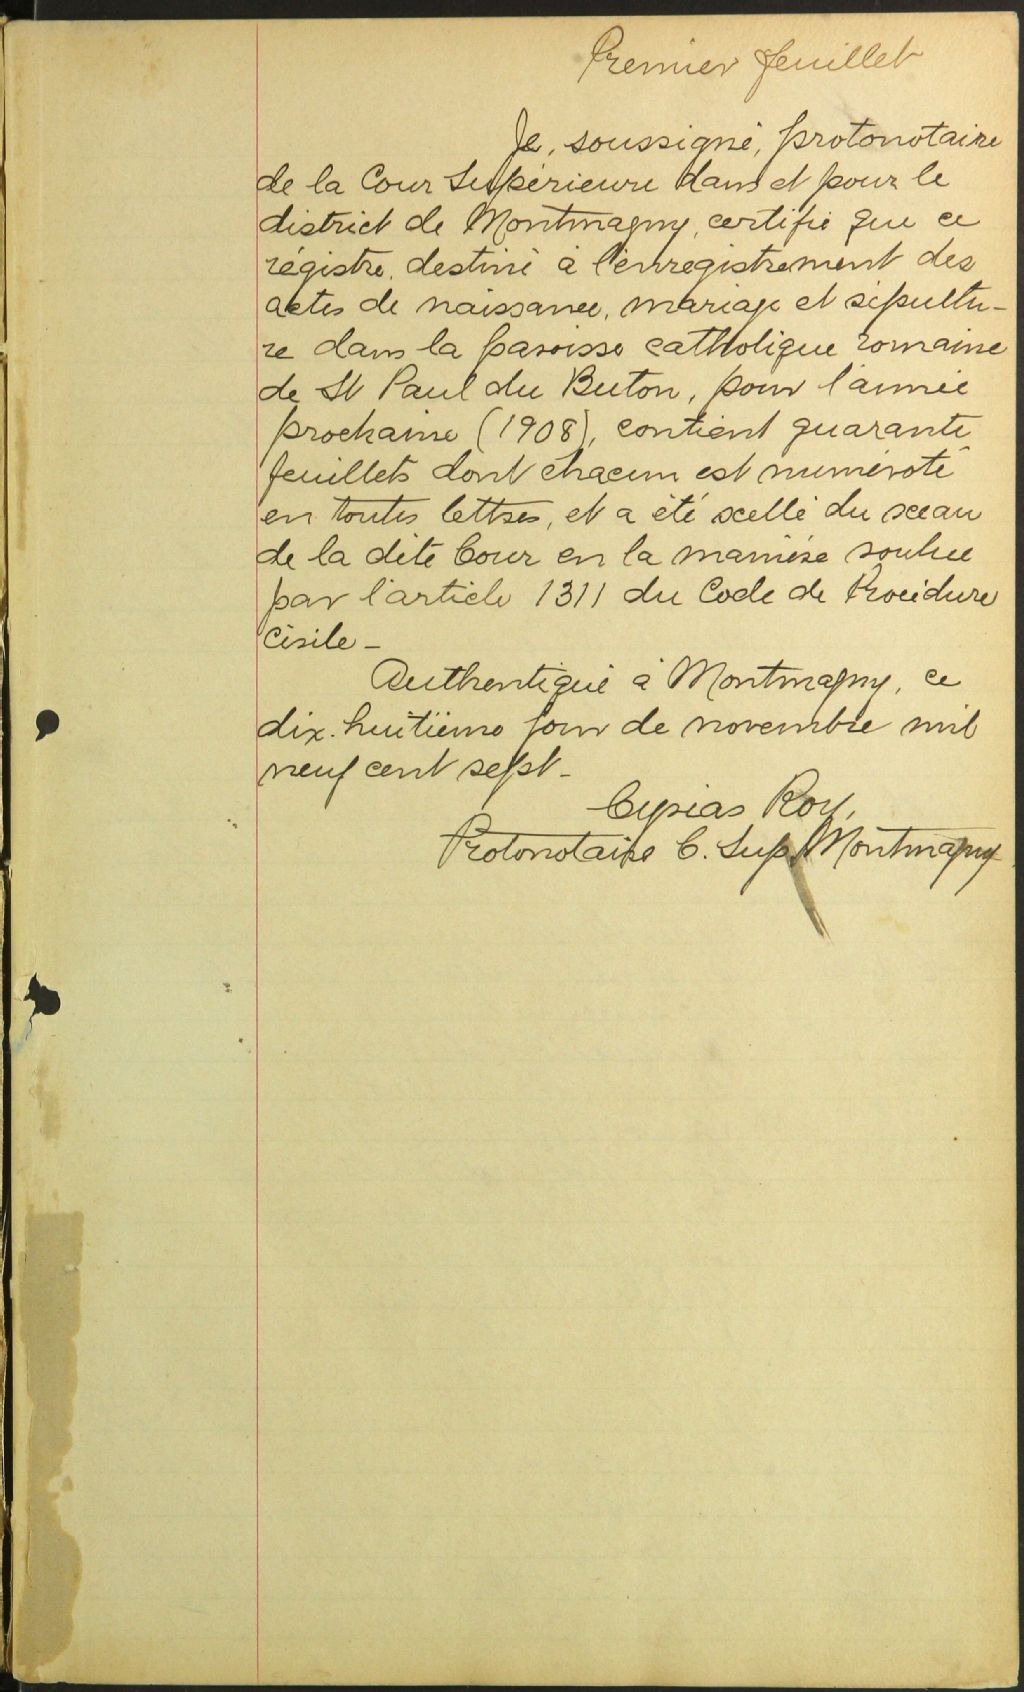 Premier feuillet
Je, soussigné, protonotaire
de la Cour Supérieure dans et pour le
district de Montmagny, certifie que ce
régistre, destiné à l'enregistrement des
actes de naissance, mariage et sépultu-
re dans la paroisse catholique romaine
de St Paul du Buton, pour l'année
prochaine (1908), contient quarante
feuillets dont chacun est numéroté
en toutes lettres, et a été scellé du sceau
de la dite Cour en la manière voulue
par l'article 1311 du Code de Procédure
Civile -
Authentiqué à Montmagny, ce
dix-huitième jour de novembre mil
neuf cent sept -
Cyprias Roy,
Protonotaire C. Sup. Montmagny